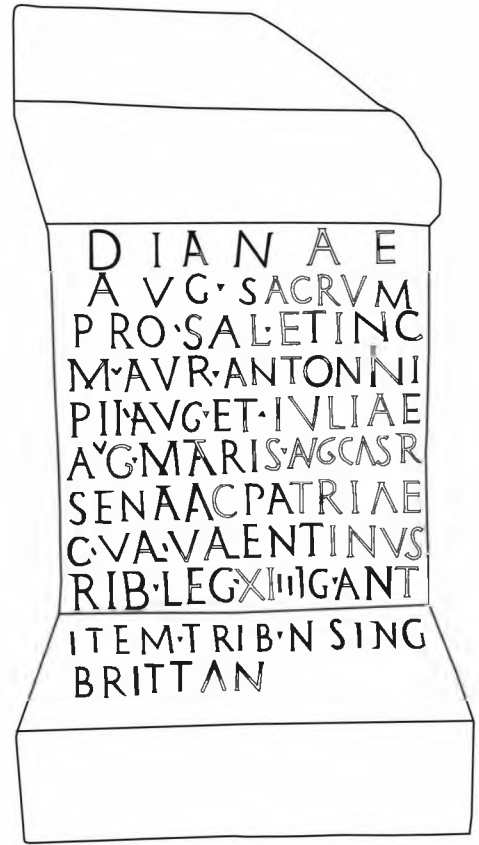 DIANAE
AVG·SACRVM
PRO·SAL·ETINC
M·AVR·ANTONNI
PII·AVG·ET·IVLIAE
AVG·MARIS·AVGCASR
SENAACPATRIAE
C·VA·VALENTINVS
RIB·LEG·XIIIIG·ANT
ITEM·TRIB·N SING
BRITTAN